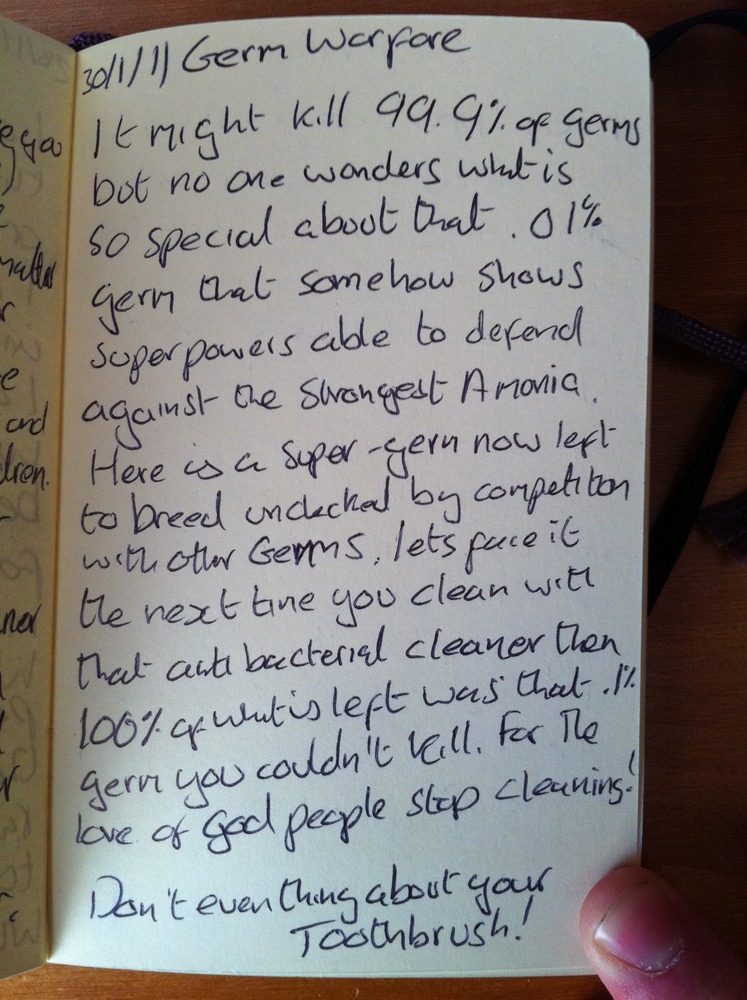 30/1/11 Germ Warfare
It might kill 99.9% of germs
but no one wonders what is
so special about that .01%
germ that somehow shows
superpowers able to defend
against the strongest Amonia.
Here is a super-germ now left
to breed unchecked by competiton
with other Germs, lets face it
the next time you clean with
that anti bacterial cleaner then
100% of what is left was that .1%
germ you couldn't kill. For The
love of God people stop cleaning!
Don't even thing about your
Toothbrush!